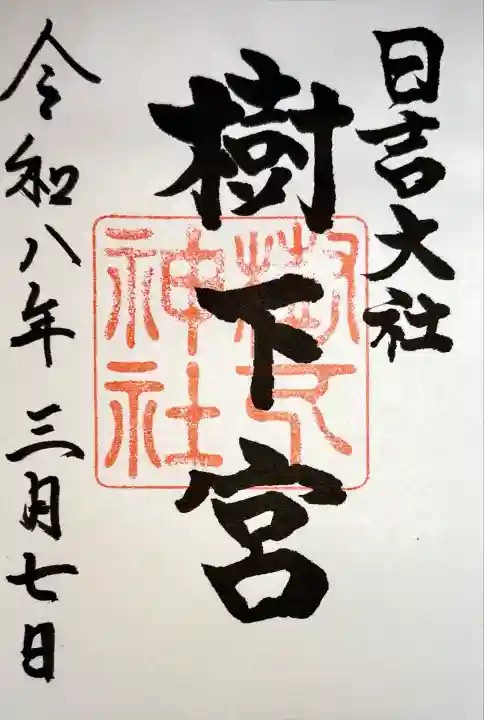 日吉大社
樹下宮
樹下
神社
令和八年三月七日